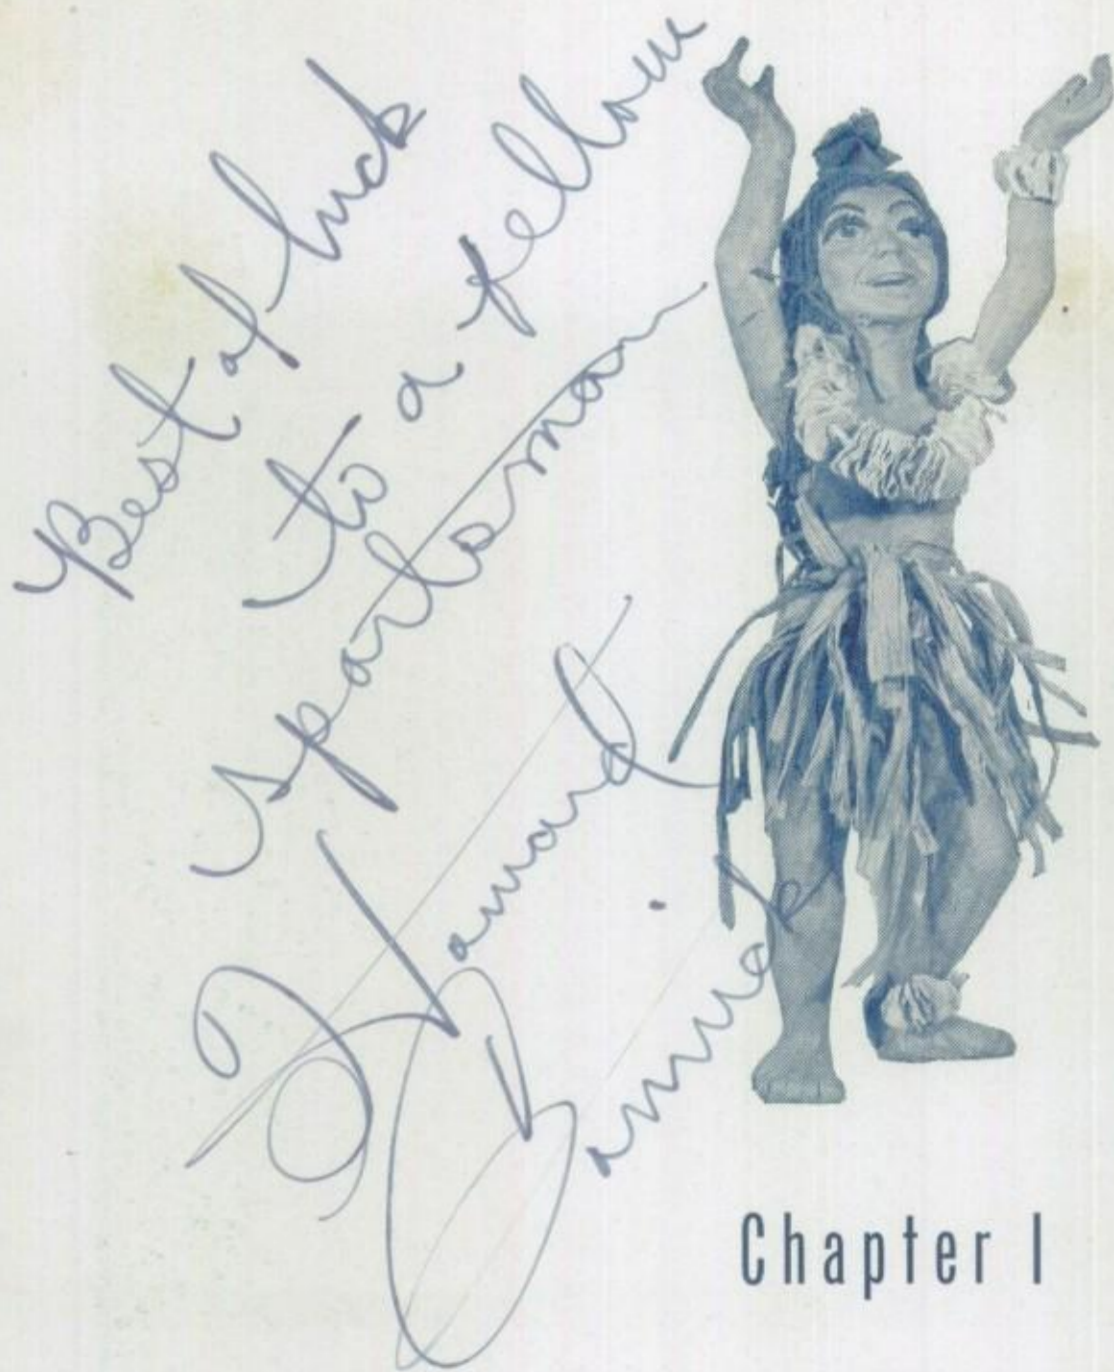 Best of luck
to a fellow
sportsman
Howard
Chapter I